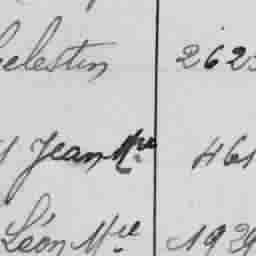 Celestin 262
Jean Mie 461
Léon Mie 1939